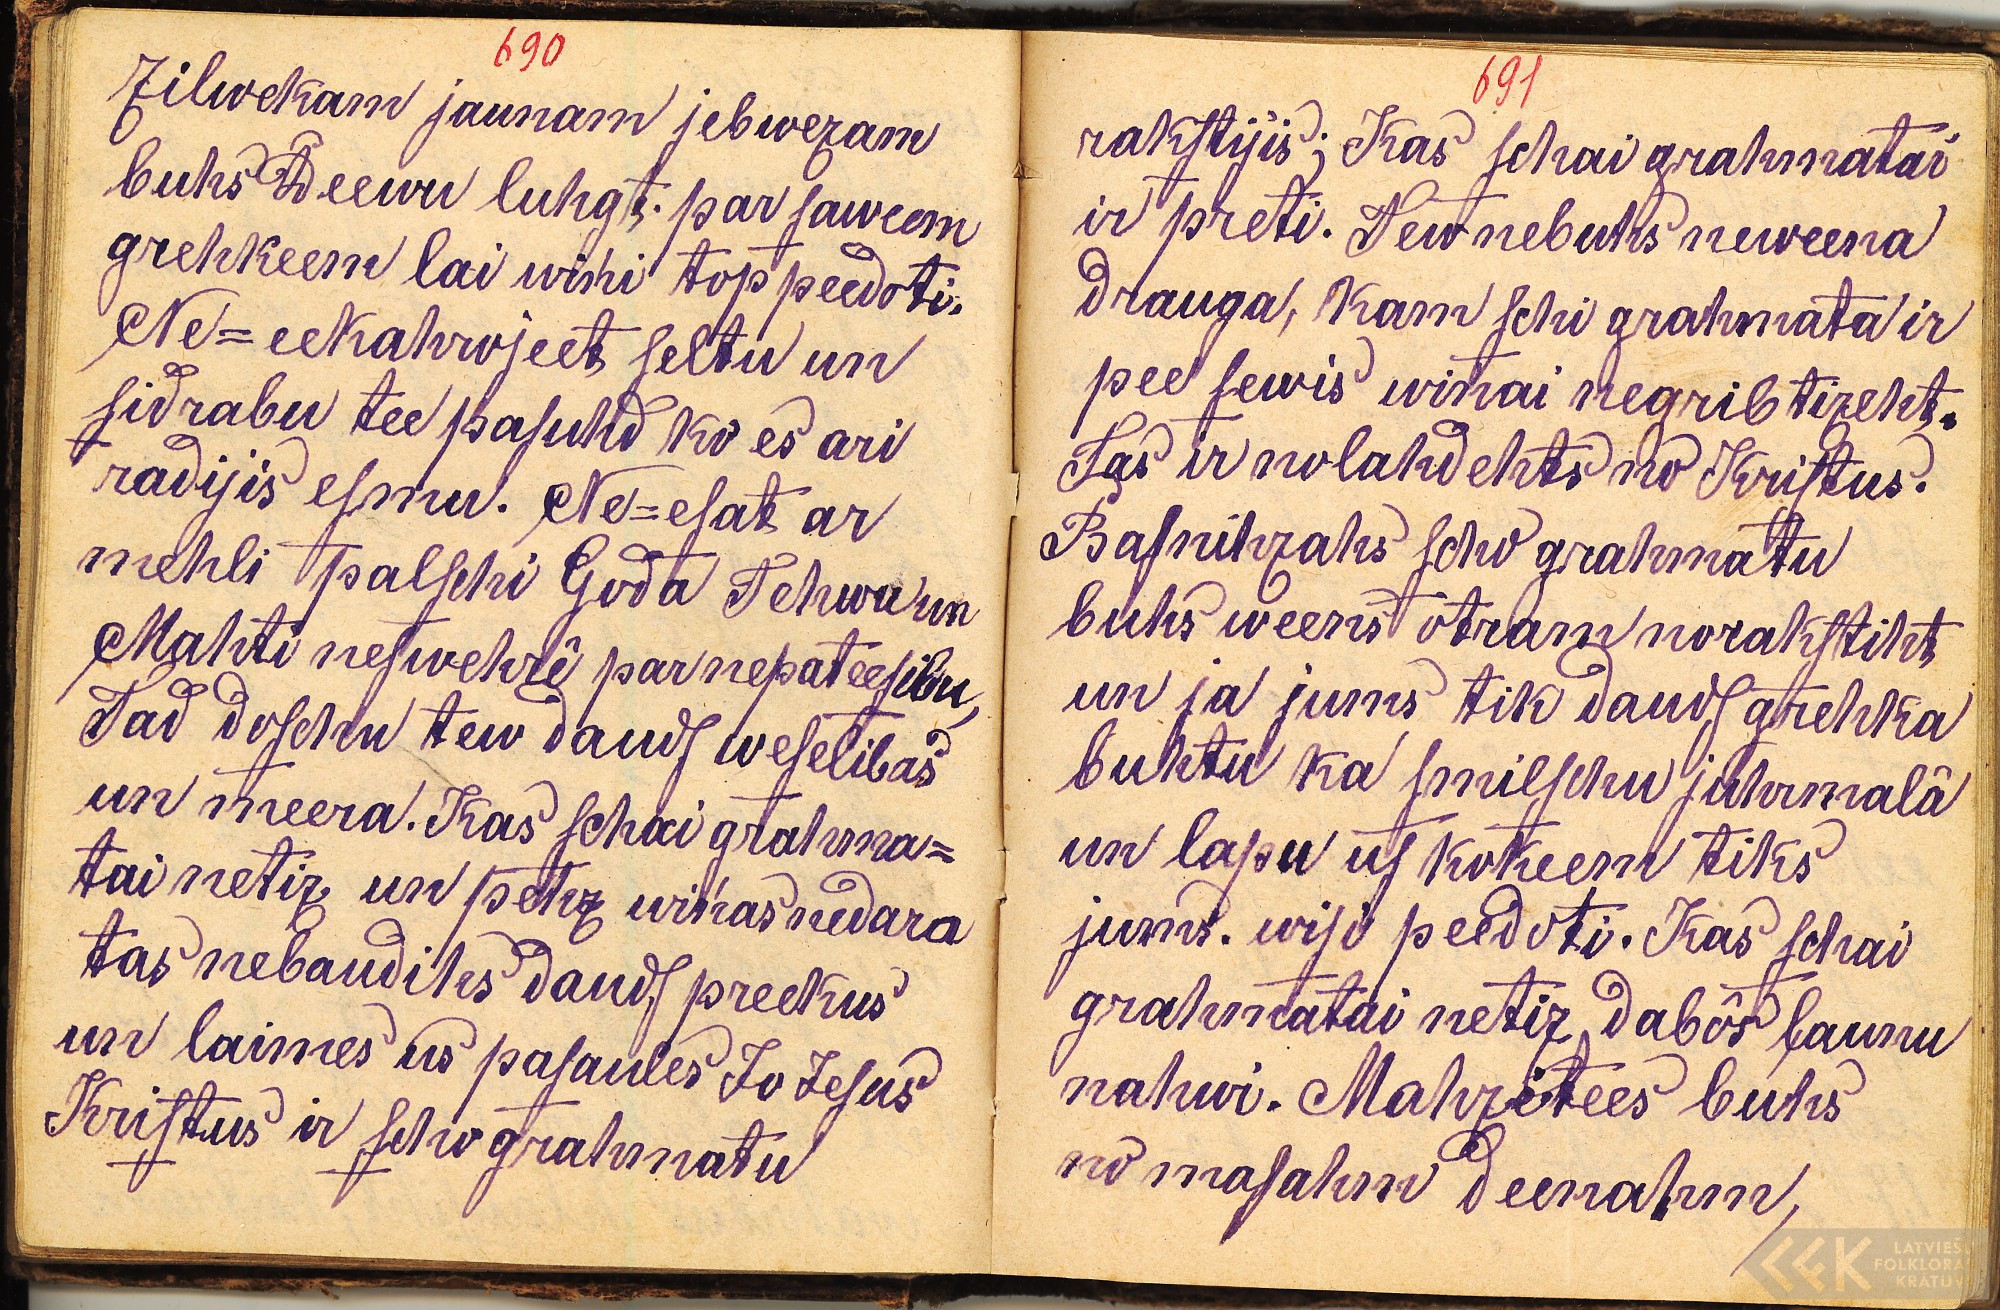 690
Zilwekam jaunam jebwezam
buhs Deewu luhgt. par saweem
grehkeem lai wiņi top peedoti.
Ne=eekahrojeet ſeltu un
ſidrabu tee paſuhd ko es ari
radijis eſmu. Ne=eſat ar
mehli palſchi Goda Tehwu un
Mahti neſwehrê par nepateeſibu,
Tad doſchu tew daudſ weſelibas
un meera. Kas ſchai grahma=
tai netiz un pehz wiņas nedara
tas nebaudihs daudſ preekus
un laimes us paſaules Jo Jeſus
Kriſtus ir ſcho grahmatu
691
rakſtijis; Kas ſchai grahmatai
ir preti. Tew nebuhs neweena
drauga, kam ſchi grahmata ir
pee ſewis wiņai negrib tizeht.
Tas ir nolahdehts no Kriſtus.
Baſnihzahs ſcho grahmatu
buhs weens otram norakſtiht
un ja jums tik daudſ grehka
buhtu ka ſmilſchu juhrmalâ
un lapu uſ kokeem tiks
jums. wiſi peedoti. Kas ſchai
grahmatai netiz dabôs ļaunu
nahwi. Mahzitees buhs
no maſahm deenahm,
LATVIEŠU
FOLKLORAS
KRĀTUVE